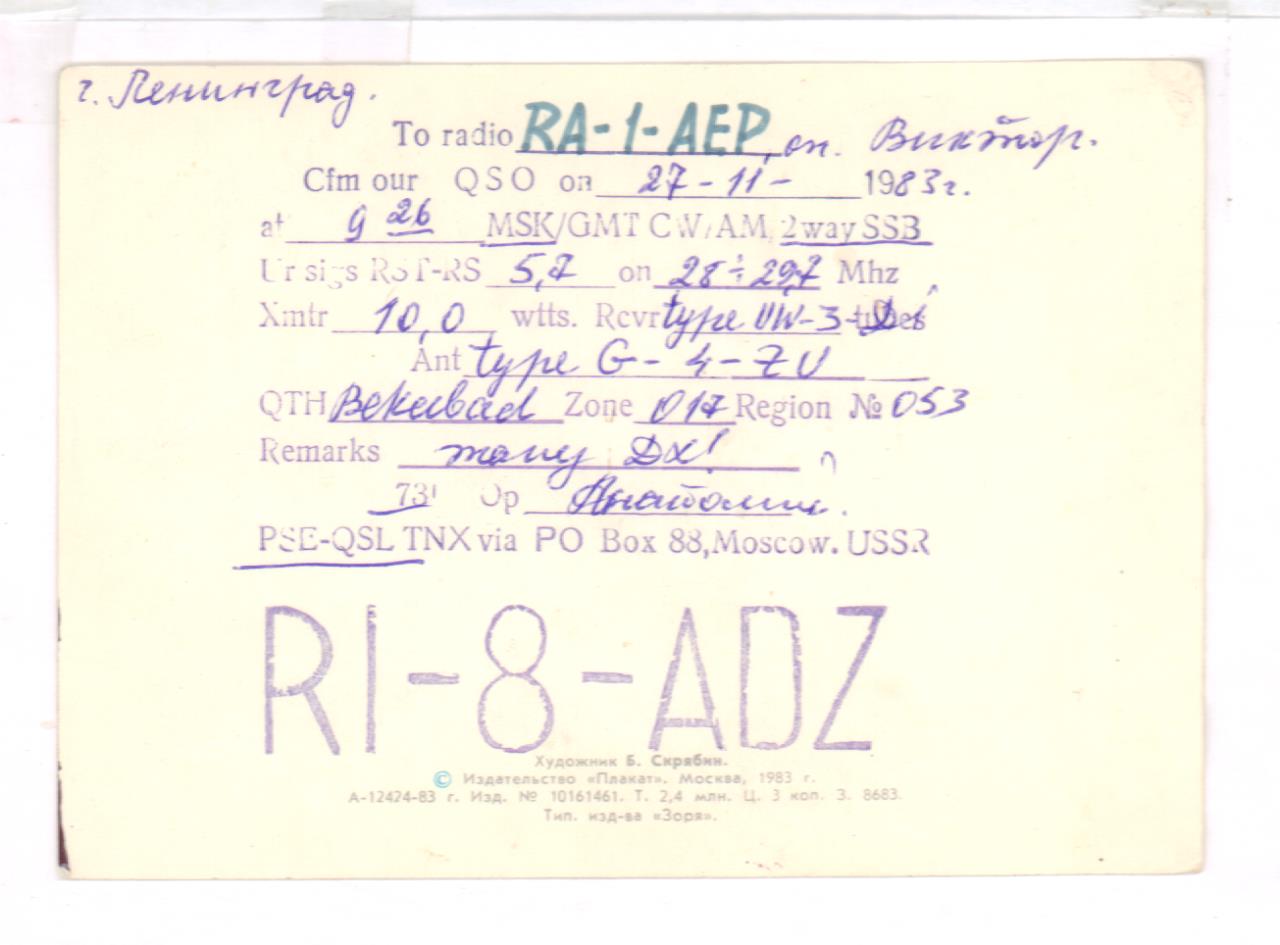 г. Ленинград.
To radio RA-1-AEP, оп. Виктор.
Cfm our QSO on 27-11- 1983г.
at 9 26 MSK/GMT CW/AM, 2way SSB
Ur sigs RST-RS 5,7 on 28÷29,7 Mhz
Xmtr 10,0 wtts. Rcvr type UW-3-
Ant type G-4-ZU
QTH Bekabad Zone 017 Region № 053
Remarks DX!
73! Op Анатолий.
PSE-QSL TNX via PO Box 88, Moscow. USSR
RI-8-ADZ
Художник Б. Скрябин.
© Издательство «Плакат». Москва, 1983 г.
А-12424-83 г. Изд. № 10161461. Т. 2,4 млн. Ц. 3 коп. З. 8683.
Тип. изд-ва «Зоря».